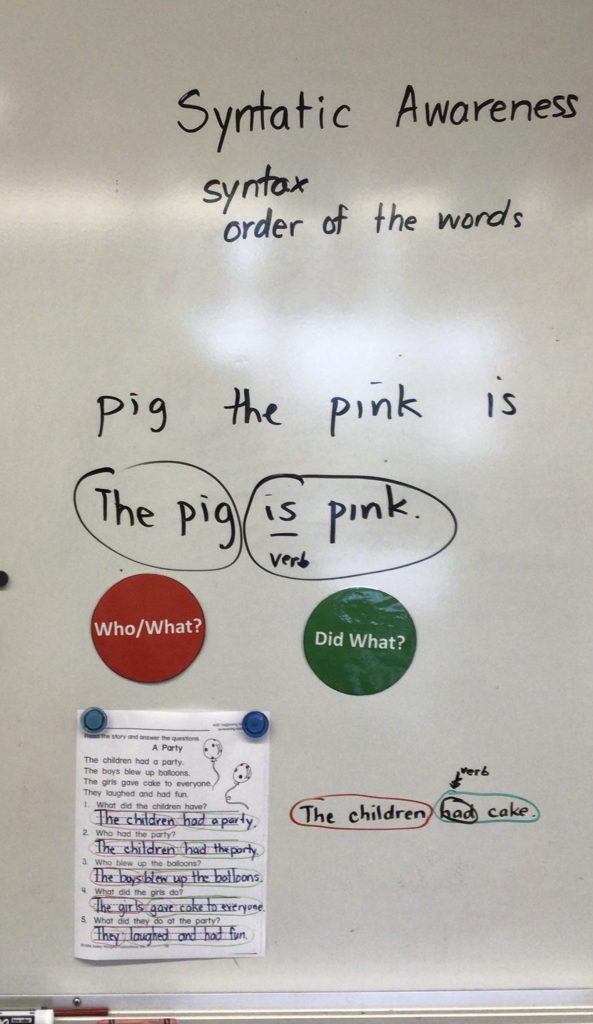 Syntatic Awareness
syntax
order of the words
pig the pink is
The pig is pink.
verb
Who/What?
Did What?
Read the story and answer the questions.
A Party
The children had a party.
The boys blew up balloons.
The girls gave cake to everyone.
They laughed and had fun.
1. What did the children have?
The children had a party.
2. Who had the party?
The children had the party.
3. Who blew up the balloons?
The boys blew up the balloons.
4. What did the girls do?
The girls gave cake to everyone.
5. What did they do at the party?
They laughed and had fun.
verb
The children had cake.